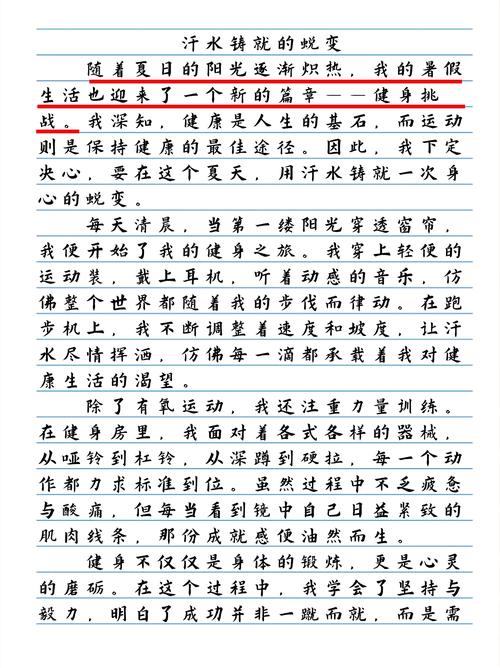 汗水铸就的蜕变
随着夏日的阳光逐渐炽热，我的暑假
生活也迎来了一个新的篇章——健身挑
战。我深知，健康是人生的基石，而运动
则是保持健康的最佳途径。因此，我下定
决心，要在这个夏天，用汗水铸就一次身
心的蜕变。
每天清晨，当第一缕阳光穿透窗帘，
我便开始了我的健身之旅。我穿上轻便的
运动装，戴上耳机，听着动感的音乐，仿
佛整个世界都随着我的步伐而律动。在跑
步机上，我不断调整着速度和坡度，让汗
水尽情挥洒，仿佛每一滴都承载着我对健
康生活的渴望。
除了有氧运动，我还注重力量训练。
在健身房里，我面对着各式各样的器械，
从哑铃到杠铃，从深蹲到硬拉，每一个动
作都力求标准到位。虽然过程中不乏疲惫
与酸痛，但每当看到镜中自己日益紧致的
肌肉线条，那份成就感便油然而生。
健身不仅仅是身体的锻炼，更是心灵
的磨砺。在这个过程中，我学会了坚持与
毅力，明白了成功并非一蹴而就，而是需